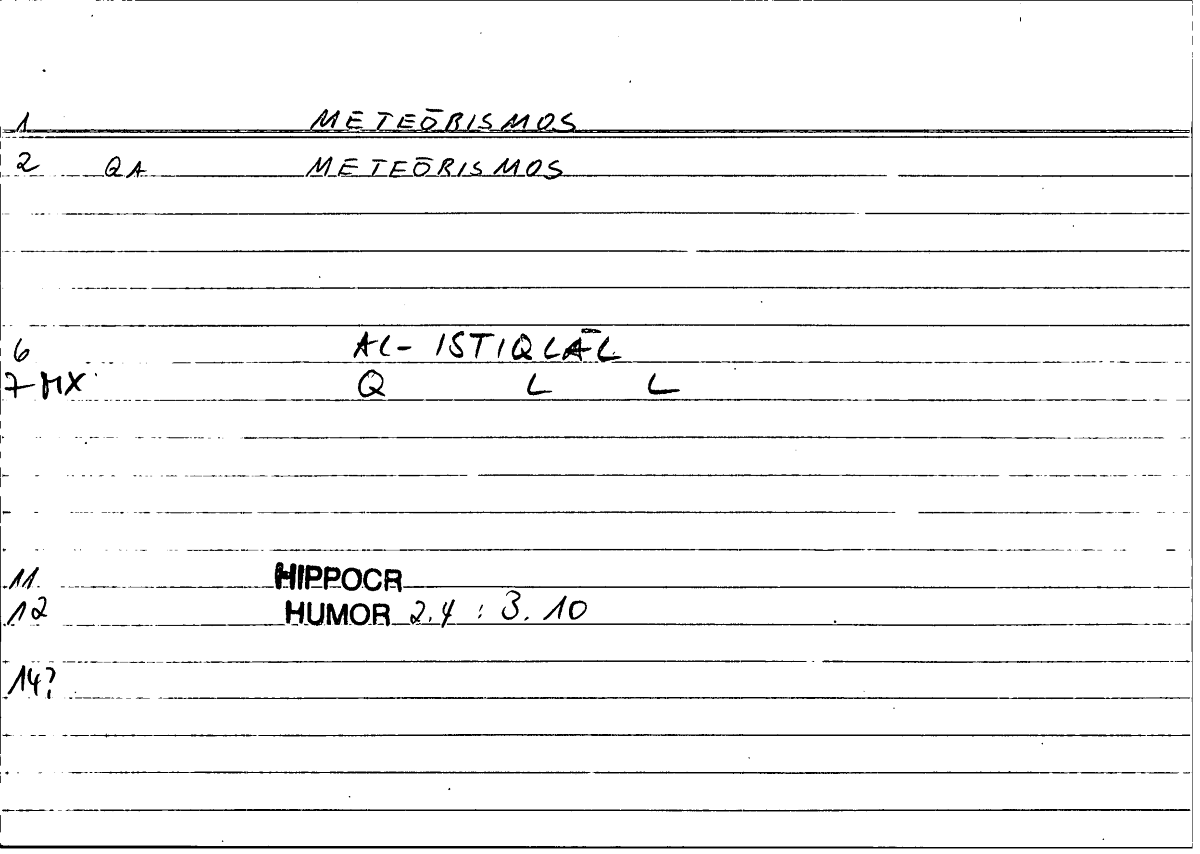 1 METEŌRISMOS
2 QA METEŌRISMOS
6 AL-ISTIQLĀL
7 MX Q L L
11 HIPPOCR
12 HUMOR 2.4 : 3.10
14?